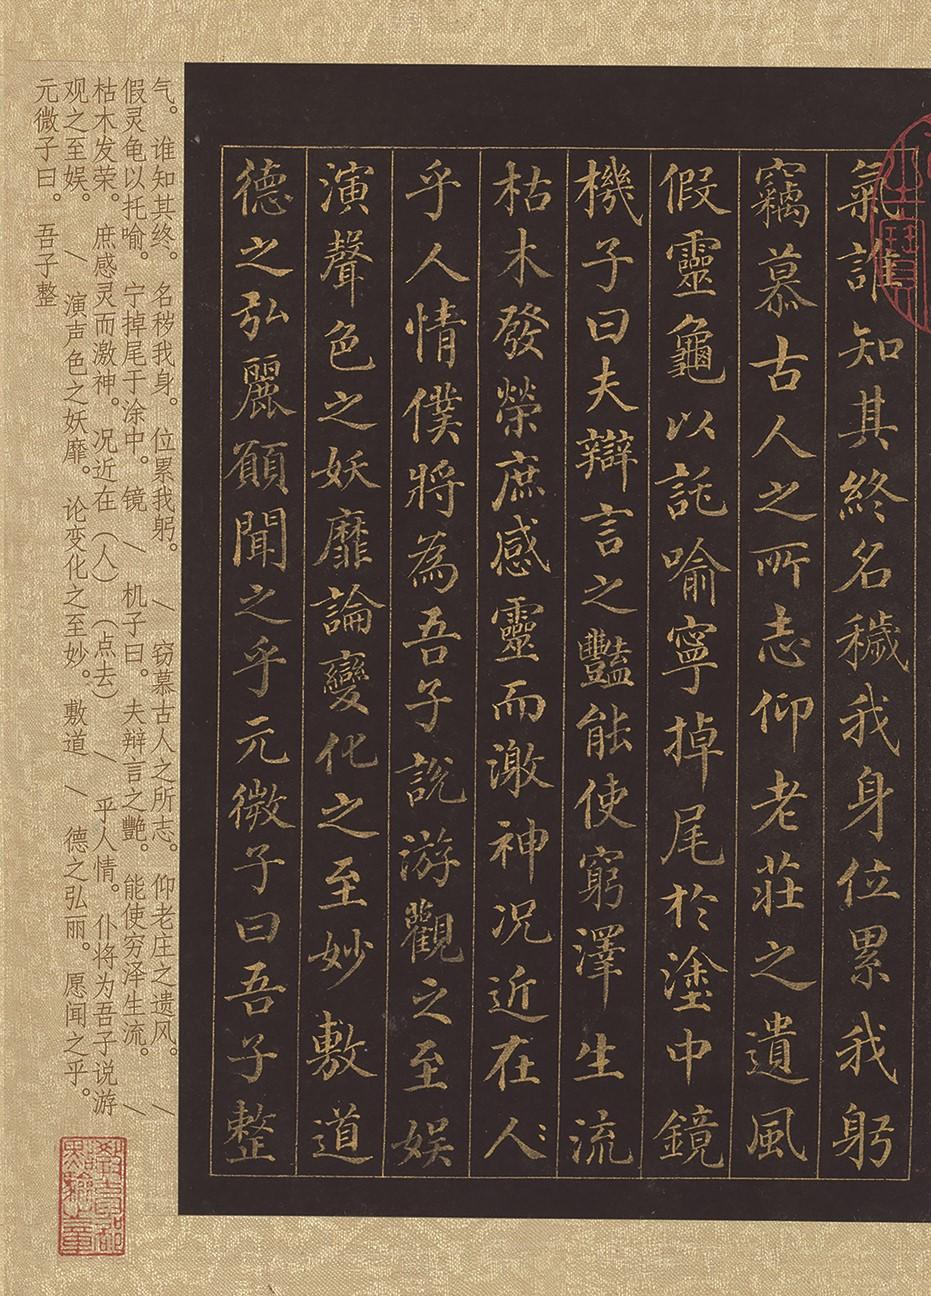 氣誰知其終名穢我身位累我躬
竊慕古人之所志仰老莊之遺風
假靈龜以託喻寧掉尾於塗中鏡
機子曰夫辯言之豔能使窮澤生流
枯木發榮庶感靈而激神况近在人
乎人情僕將為吾子說游觀之至娱
演聲色之妖靡論變化之至妙敷道
德之弘麗願聞之乎元微子曰吾子整
气。谁知其终。名秽我身。位累我躬。/窃慕古人之所志。仰老庄之遗风。/
假灵龟以托喻。宁掉尾于涂中。镜/机子曰。夫辩言之艳。能使穷泽生流。/
枯木发荣。庶感灵而激神。况近在(人)(点去)/乎人情。仆将为吾子说游
观之至娱。/演声色之妖靡。论变化之至妙。敷道/德之弘丽。愿闻之乎。
元微子曰。吾子整